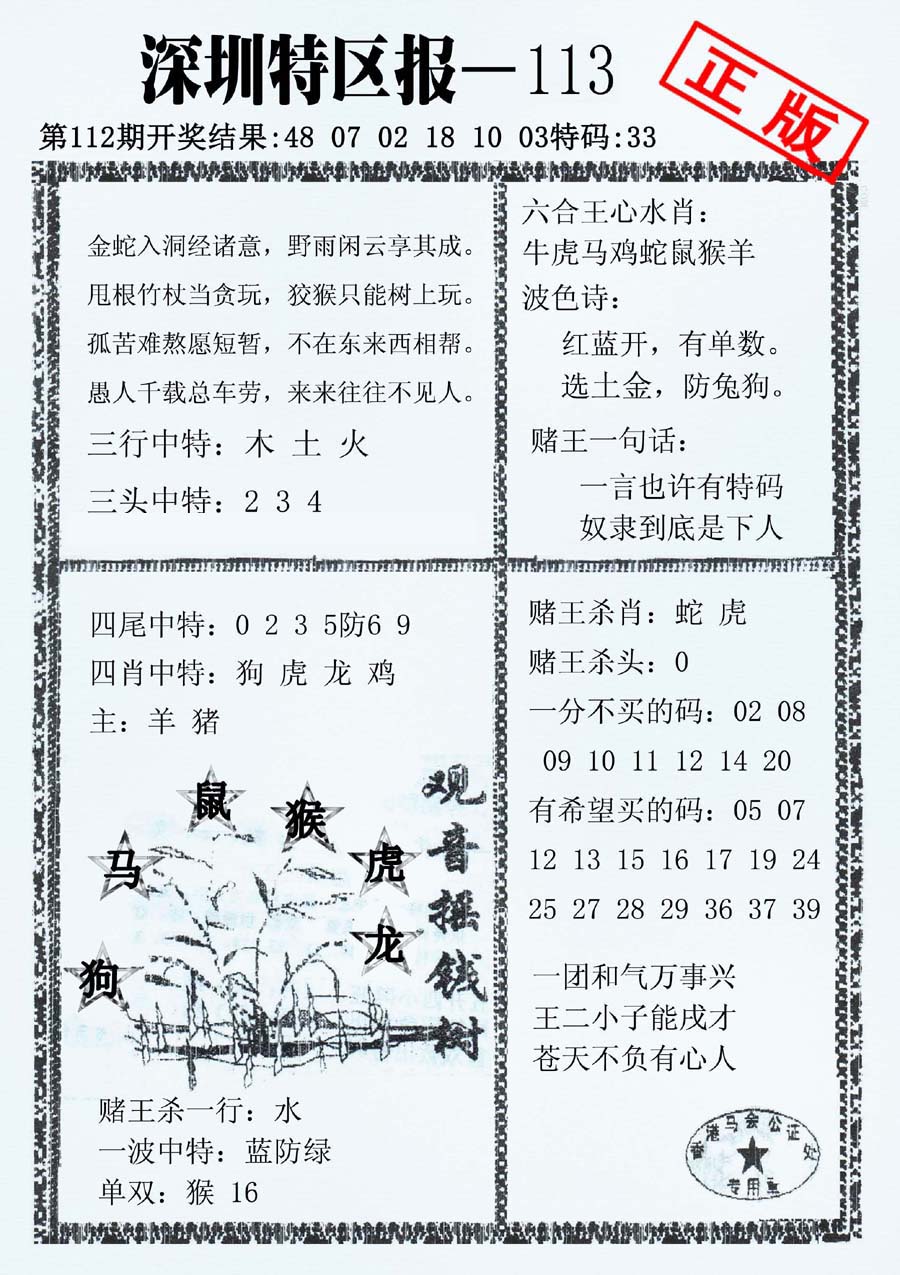 深圳特区报—113
正版
第112期开奖结果:48 07 02 18 10 03特码:33
金蛇入洞经诸意，野雨闲云享其成。
甩根竹杖当贪玩，狡猴只能树上玩。
孤苦难熬愿短暂，不在东来西相帮。
愚人千载总车劳，来来往往不见人。
三行中特：木 土 火
三头中特：2 3 4
六合王心水肖：
牛虎马鸡蛇鼠猴羊
波色诗：
红蓝开，有单数。
选土金，防兔狗。
赌王一句话：
一言也许有特码
奴隶到底是下人
四尾中特：0 2 3 5防6 9
四肖中特：狗 虎 龙 鸡
主：羊 猪
鼠
猴
马
虎
龙
狗
观音摇钱树
赌王杀一行：水
一波中特：蓝防绿
单双：猴 16
赌王杀肖：蛇 虎
赌王杀头：0
一分不买的码：02 08
09 10 11 12 14 20
有希望买的码：05 07
12 13 15 16 17 19 24
25 27 28 29 36 37 39
一团和气万事兴
王二小子能戌才
苍天不负有心人
香港马会公证处
专用章